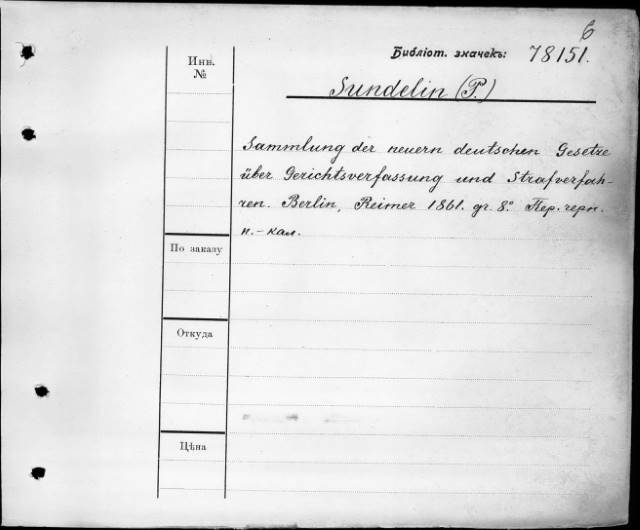 6
Библіот. значекъ: 78151.
Инв.
№
Sundelin (P.)
Sammlung der neuern deutschen Gesetze
über Gerichtsverfassung und Strafverfah-
ren. Berlin, Reimer 1861. gr. 8º. Пер. черн.
к.-кал.
По заказу
Откуда
Цѣна